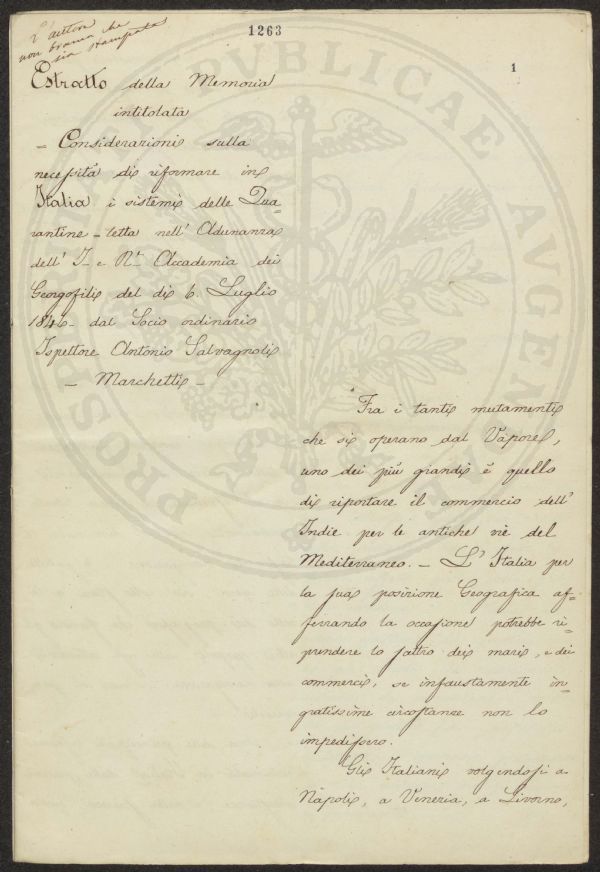 L'autore
non brama che
sia stampata
1263
1
Estratto della Memoria
intitolata
– Considerazioni sulla
necessità di riformare in
Italia i sistemi delle Qua-
rantine – letta nell' Adunanza
dell' I. e R. Accademia dei
Georgofili del dì 6. Luglio
1846 – dal Socio ordinario
Ispettore Antonio Salvagnoli
– Marchetti –
Fra i tanti mutamenti
che si operano dal Vapore,
uno dei più grandi è quello
di riportare il commercio dell'
Indie per le antiche vie del
Mediterraneo. – L' Italia per
la sua posizione Geografica af-
ferrando la occasione potrebbe ri-
prendere lo scettro dei mari, e dei
commerci, se infaustamente in-
gratissime circostanze non lo
impedissero.
Gli Italiani volgendosi a
Napoli, a Venezia, a Livorno,
PROSPERITATI PUBLICAE AUGENDAE